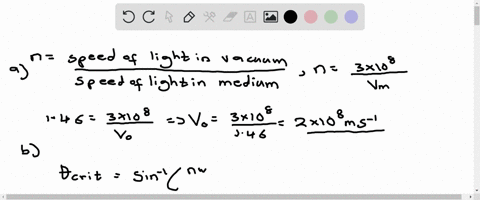 a) n = speed of light in vacuum / speed of light in medium , n = 3×10⁸ / Vm
1.46 = 3×10⁸ / V₀ => V₀ = 3×10⁸ / 1.46 = 2×10⁸ ms⁻¹
b)
θcrit = sin⁻¹ ( nw